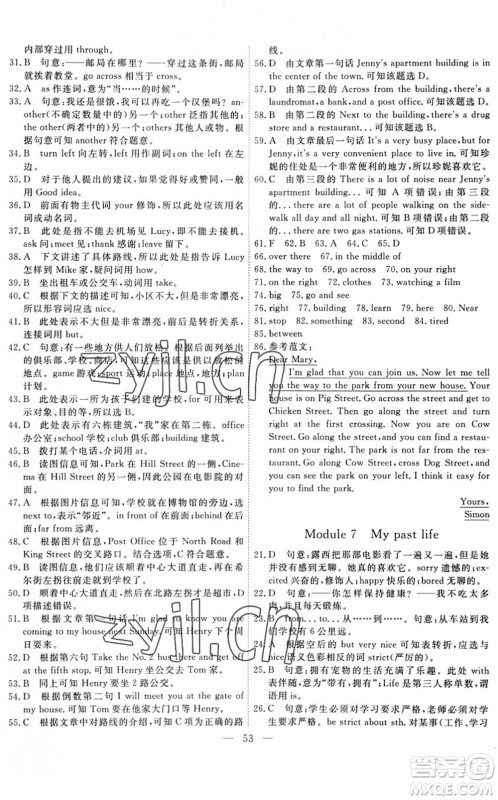 内部穿过用 through。
31. B 句意:——邮局在哪里?——穿过这条街,邮局就挨着教堂。go across 相当于 cross。
32. A as 作连词,意为“当……的时候”。
33. A 句意:我能再吃一个汉堡吗?another(不确定数量中的)另一个;other 泛指其他的;the other(两者中的)另一个;others 其他人/物。根据句意可知 another 符合题意。
34. B turn left 向左转,left 用作副词。
35. D 对于他人提出的建议,如果觉得非常好,一般用 Good idea。
36. D 前面有物主代词 your 修饰,所以此处应用名词,而不是动词。
37. B 此处是指不用谢,而不是指没关系。
ask 问;meet 见到;thank 感谢。
38. A 下文讲述了具体路线,所以此处指告诉 Lucy 怎样到 Mike 家,而不是指让他看见 Lucy。
39. B 租车或开车,介词用 in。
40. C 根据下文的描述可知,小区不大,但是非常漂亮,所以形容词应选 nice。
41. B 此处表示不大但是非常漂亮,表示前后转折,连接词用 but。
42. C 句意:有一些地方供人们放松。根据后面举出的俱乐部、学校、商店,可知这些都是供放松的地点。game 游戏;sport 运动;place 地方;plan 计划。
43. D 此处表示一所为孩子们建的学校,介词用 for。
44. D 本小区有六座大楼,“我”家在第二栋。office 办公室;school 学校;club 俱乐部;building 建筑。
45. B 拨打某个电话,介词用 at。
46. B 读图信息可知,Park 在 Hill Street 的一侧,Cinema 在 Hill Street 的另一侧,因此公园在电影院的对面。
47. A 根据图片信息可知,学校就在博物馆的旁边,选 next to,表示“邻近”。in front of 在前面;behind 在后面;under 在下面。
48. C 根据图片信息,Post Office 位于 North Road 和 King Street 的交叉路口。C 符合题意。
49. B 读图信息,顺着中心大道直走,在第二个路口,希尔街左拐,超市就在你的左边。
50. D 顺着中心大道直走,在北路左拐才是超市,所以 D 描述错误。
51. C 根据文章第一句话 I'm glad to know you are coming to my house next Sunday. 可知 Henry 下周日要来。
52. D 根据第六句 Take the No. 2 bus there and get off at the fifth stop. 可知 Henry 要坐公交去 Tom 家。
53. D 同上可知 Henry 坐 2 路公交。
54. C 根据倒数第二句 I will meet you at the gate of my house. 可知 Tom 在他家门口接 Henry。
55. C 根据文章中对路线的介绍,可知 C 为正确的路
线。
56. D 由文章第一句话 Jenny's apartment building is in the center of the town. 可知该题选 D。
57. D 由第二段的 Across from the building, there's a laundromat, a bank and a post office. 可知选 D。
58. B 由第二段的 Next to the building, there's a drug store and a restaurant... 可知选 B。
59. A 由第四段第一句话 It's a very busy place, but for Jenny, it's a very convenient place to live in. 可知珍妮的住处是一个非常便利的地方,所以珍妮喜欢它。
60. C 由第三段的 There is a lot of noise near Jenny's apartment building. 可知该地方非常嘈杂;由第三段的 there are a lot of people walking on the side-walks, day and night. 可知人非常多,因此选 C。
61. F 62. B 63. A 64. C 65. D
66. over there 67. in the middle of
68. the way to 69. go along 70. on your right
71. the way 72. on the right 73. across from
74. big 75. go and see
76. right 77. born 78. learn 79. here 80. Near
81. stop 82. something 83. another 84. between
85. started
86. 参考范文:
Dear Mary,
I'm glad that you can join us. Now let me tell you the way to the park from your new house. Your house is on Pig Street. Go along the street and get to Chicken Street. Then go along the street and turn right at the restaurant. There is a park in front of the restaurant. Go along Cow Street, cross Dog Street, and you can get to the park on your left. I think it's easy for you to find it.
Yours,
Simon
Module 7 My past life
21. D 句意:露西把那部电影看了一遍又一遍,但是她还想再看。她真的喜欢它。sorry 遗憾的;excited 兴奋的;happy 快乐的;bored 无聊的。
22. D 句意:——你怎样保持健康?——我每天骑自行车去学校。
23. B from... to... 从……到……。句意:从我们家到我们学校有 6 公里远。
24. A 根据空后的 but 可知空处应填一个与 nice 语义色彩相反的词 strict(严格的)。
25. A 句意:有宠物的生活充满了乐趣。此处描述的是一种客观事实。Life 是第三人称单数,谓语用 is。
26. B 句意:学生应该对学习要求严格,老师应对学生要求严格。be strict about sth. 对某事(工作、学习
53